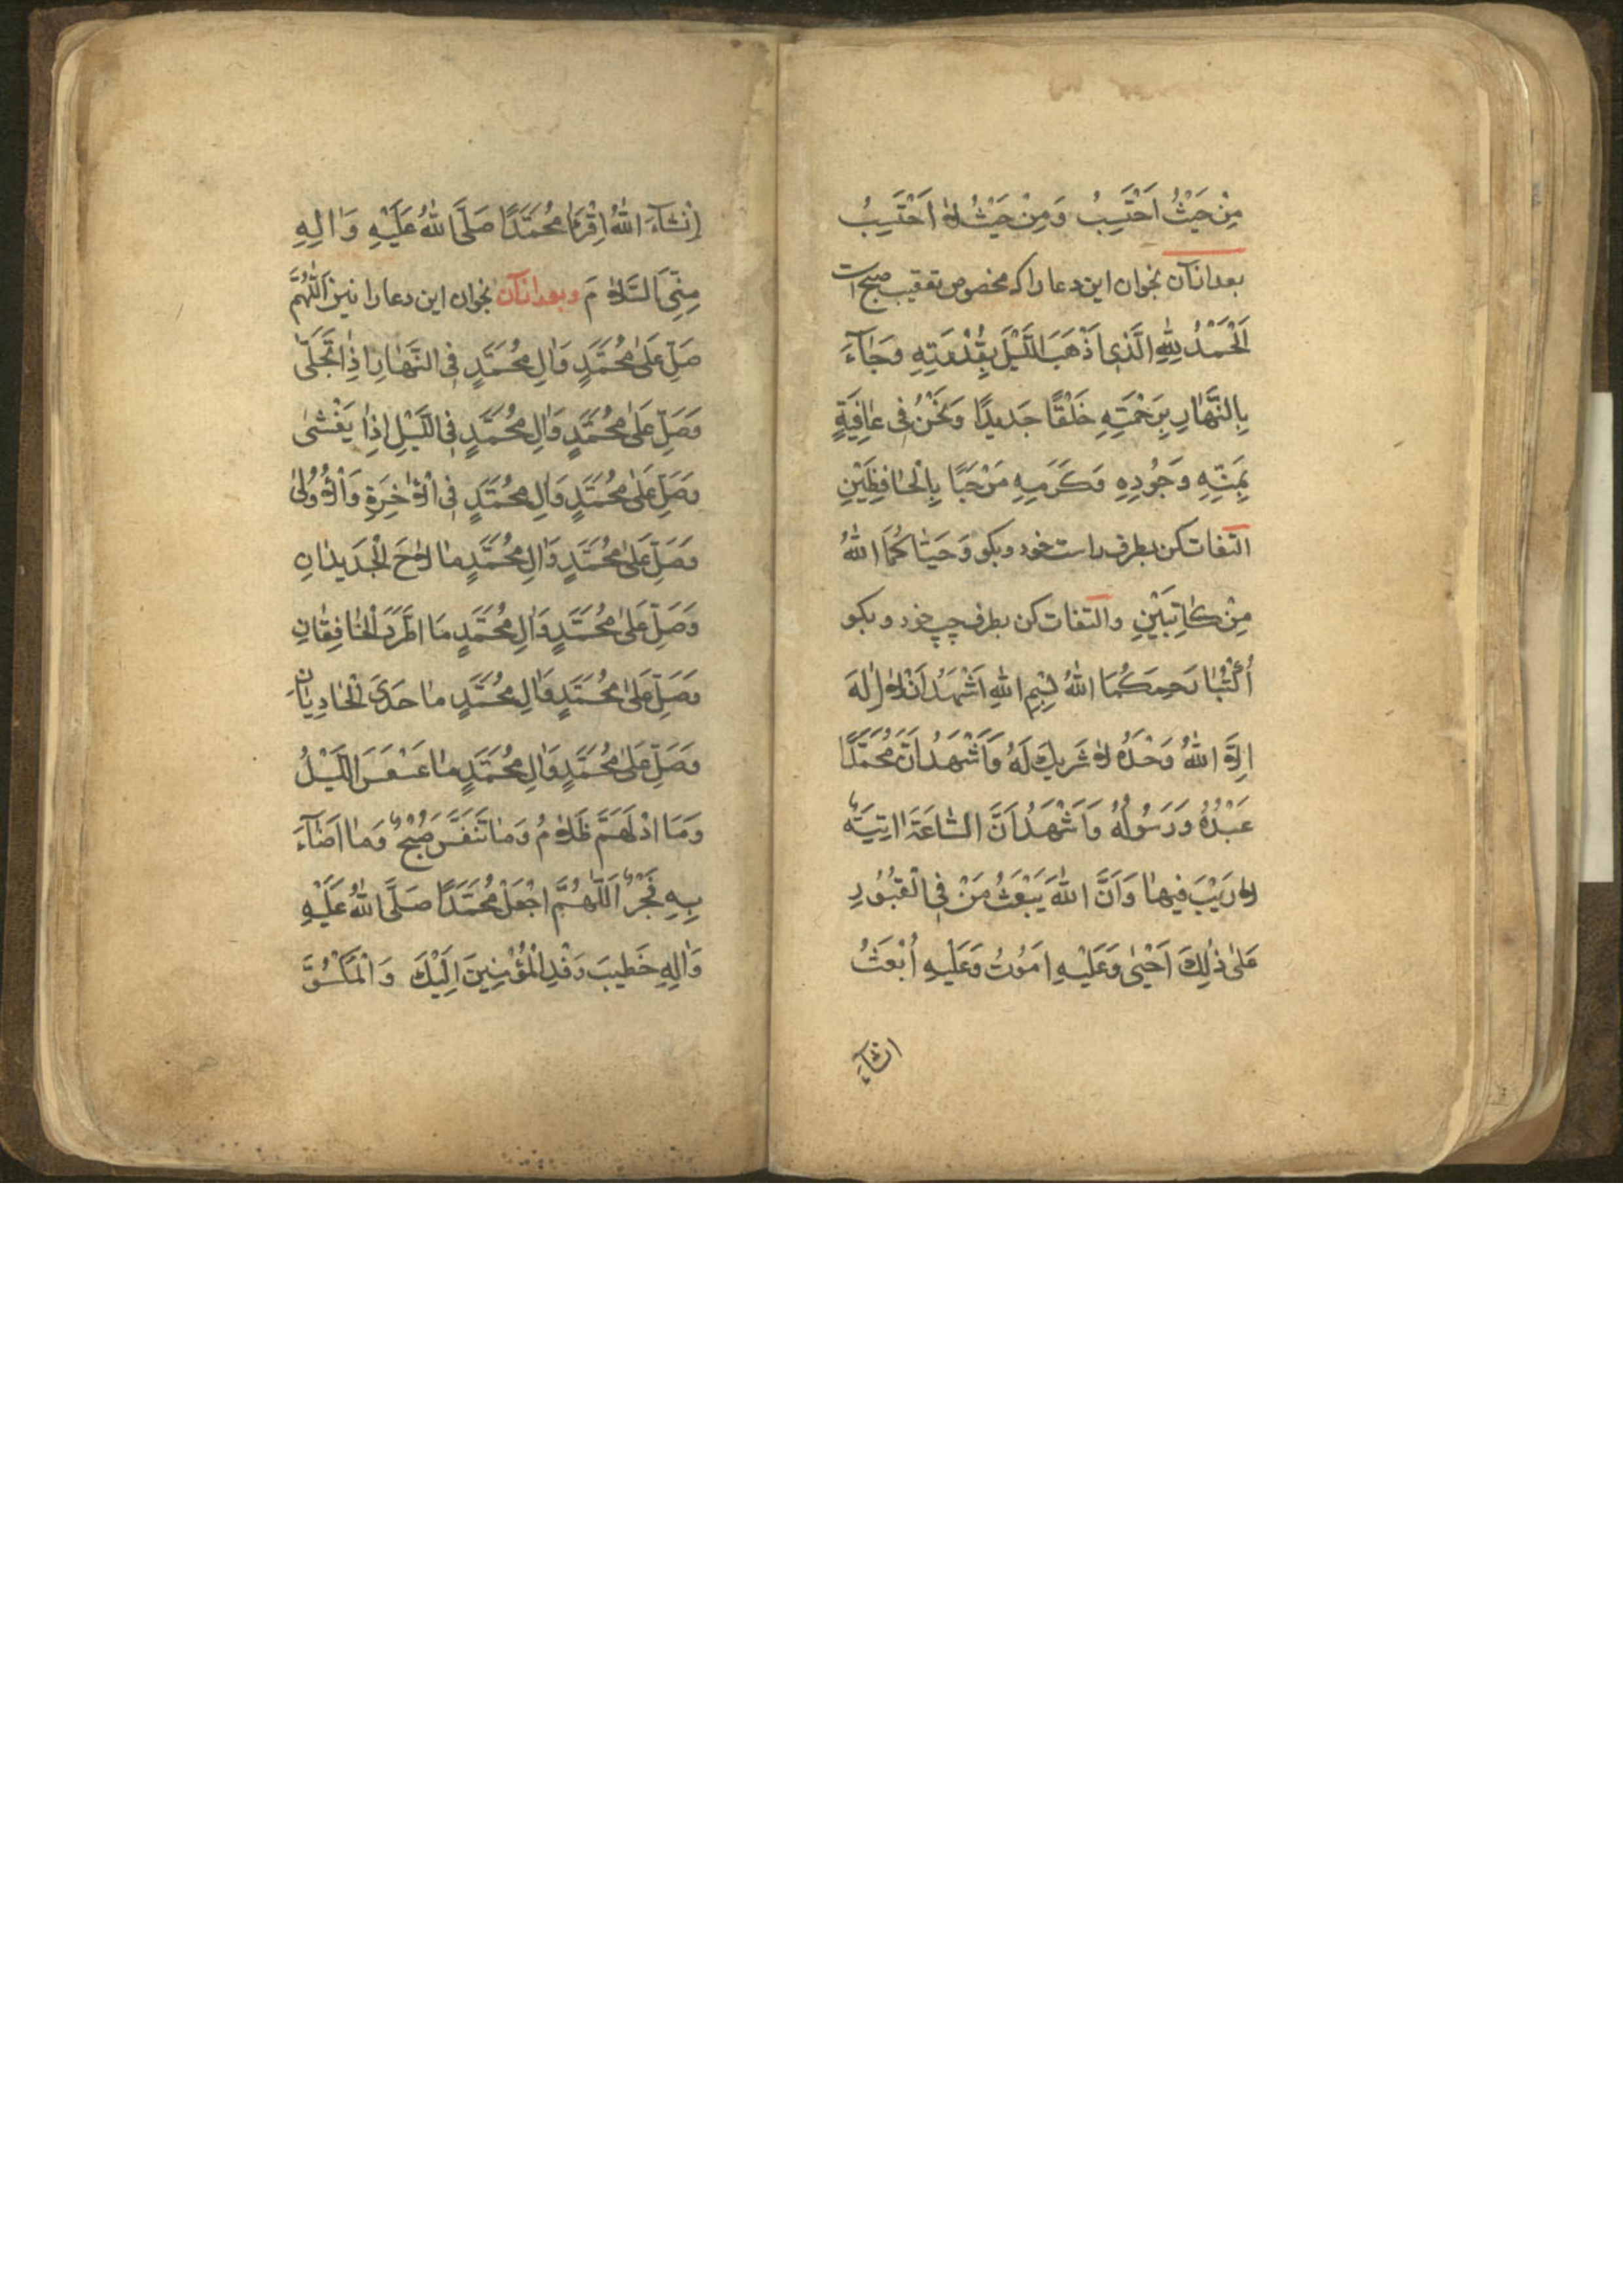 مِنْ حَيْثُ اَحْتَسِبُ وَمِنْ حَيْثُ لاٰ اَحْتَسِبُ
بعد از آن بخوان این دعا را که مخصوص تعقیب صبح است
اَلْحَمْدُ لِلّٰهِ الَّذٖي اَذْهَبَ اللَّيْلَ بِقُدْرَتِهِ وَجٰآءَ
بِالنَّهٰارِ بِرَحْمَتِهِ خَلْقًا جَدٖيدًا وَنَحْنُ فٖى عٰافِيَةٍ
بِمَنِّهِ وَجُودِهِ وَكَرَمِهِ مَرْحَبًا بِالْحٰافِظَيْنِ
التفات کن بطرف راست خود و بکو وَحَيّٰاكُمَا اللّٰهُ
مِنْ كٰاتِبَيْنِ والتفات کن بطرف چپ خود و بکو
اُكْتُبٰا رَحِمَكُمَا اللّٰهُ بِسْمِ اللّٰهِ اَشْهَدُ اَنْ لاٰ اِلٰهَ
اِلاَّ اللّٰهُ وَحْدَهُ لاٰ شَرٖيكَ لَهُ وَاَشْهَدُ اَنَّ مُحَمَّدًا
عَبْدُهُ وَرَسُولُهُ وَاَشْهَدُ اَنَّ السّٰاعَةَ اٰتِيَةٌ
لاٰ رَيْبَ فٖيهٰا وَاَنَّ اللّٰهَ يَبْعَثُ مَنْ فِى الْقُبُورِ
عَلٰى ذٰلِكَ اَحْيٰى وَعَلَيْهِ اَمُوتُ وَعَلَيْهِ اُبْعَثُ
انشآء
اِنْشٰآءَ اللّٰهُ اِقْرَءْ مُحَمَّدًا صَلَّى اللّٰهُ عَلَيْهِ وَاٰلِهِ
مِنِّى السَّلاٰمَ وبعد از آن بخوان این دعا را نیز اَللّٰهُمَّ
صَلِّ عَلٰى مُحَمَّدٍ وَاٰلِ مُحَمَّدٍ فِى النَّهٰارِ اِذٰا تَجَلّٰى
وَصَلِّ عَلٰى مُحَمَّدٍ وَاٰلِ مُحَمَّدٍ فِى اللَّيْلِ اِذٰا يَغْشٰى
وَصَلِّ عَلٰى مُحَمَّدٍ وَاٰلِ مُحَمَّدٍ فِى الْاٰخِرَةِ وَالْاُولٰى
وَصَلِّ عَلٰى مُحَمَّدٍ وَاٰلِ مُحَمَّدٍ مٰا لاٰحَ الْجَدٖيدٰانِ
وَصَلِّ عَلٰى مُحَمَّدٍ وَاٰلِ مُحَمَّدٍ مَا اطَّرَدَ الْخٰافِقٰانِ
وَصَلِّ عَلٰى مُحَمَّدٍ وَاٰلِ مُحَمَّدٍ مٰا حَدَى الْحٰادِيٰانِ
وَصَلِّ عَلٰى مُحَمَّدٍ وَاٰلِ مُحَمَّدٍ مٰا عَسْعَسَ اللَّيْلُ
وَمَا ادْلَهَمَّ ظَلاٰمُ وَمٰا تَنَفَّسَ صُبْحٌ وَمٰا اَضٰآءَ
بِهِ فَجْرٌ اَللّٰهُمَّ اجْعَلْ مُحَمَّدًا صَلَّى اللّٰهُ عَلَيْهِ
وَاٰلِهِ خَطٖيبَ وَفْدِ الْمُؤْمِنٖينَ اِلَيْكَ وَالْمَكْسُوَّ